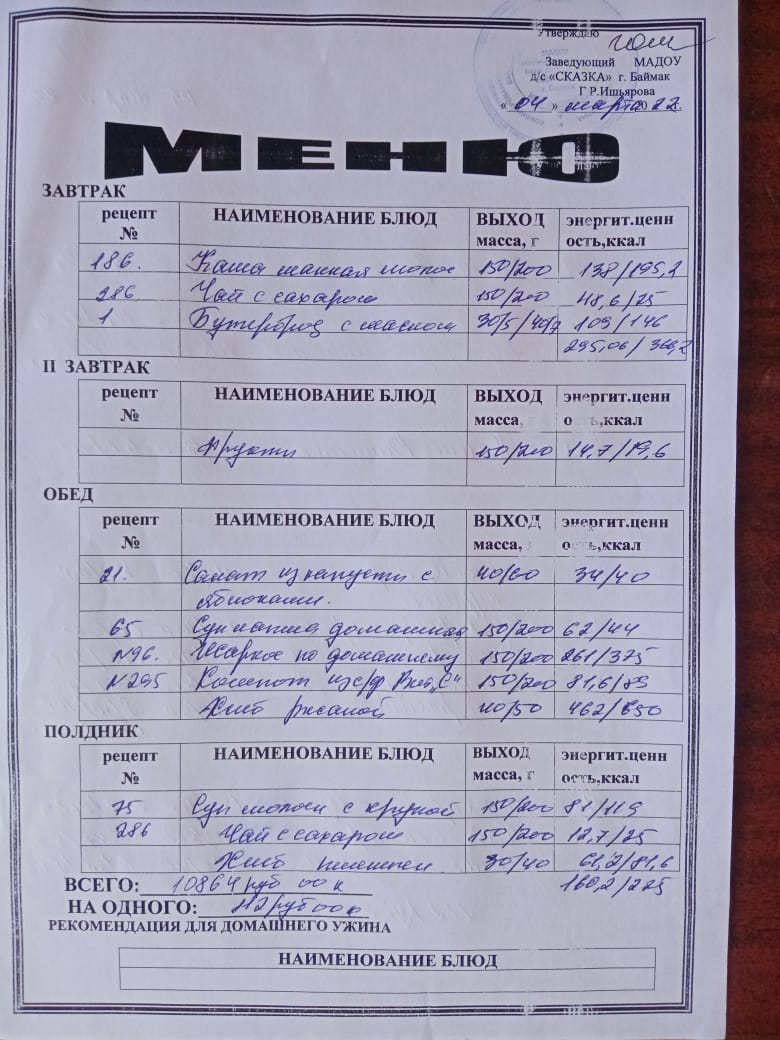 Утверждаю
Заведующий МАДОУ
д/с «СКАЗКА» г. Баймак
Г Р.Ишьярова
« 04 » марта 20 22
МЕНЮ
ЗАВТРАК
рецепт № НАИМЕНОВАНИЕ БЛЮД ВЫХОД масса, г энергит.ценн ость,ккал
186. Каша манная молоч 150/200 138/195,2
286 Чай с сахаром 150/200 48,6/25
1 Бутерброд с маслом 30/5/40/7 109/146
295,06/366,2
II ЗАВТРАК
рецепт № НАИМЕНОВАНИЕ БЛЮД ВЫХОД масса, г энергит.ценн ость,ккал
Фрукты 150/200 14,7/19,6
ОБЕД
рецепт № НАИМЕНОВАНИЕ БЛЮД ВЫХОД масса, г энергит.ценн ость,ккал
21. Салат из капусты с 40/60 34/40
яблоками.
65 Суп лапша домашняя 150/200 62/44
N96. Жаркое по домашнему 150/200 261/375
N295 Компот из с/ф Вит „С" 150/200 81,6/89
Хлеб ржаной 40/50 462/650
ПОЛДНИК
рецепт № НАИМЕНОВАНИЕ БЛЮД ВЫХОД масса, г энергит.ценн ость,ккал
75 Суп молочн с крупой 150/200 81/119
286 Чай с сахаром 150/200 12,7/25
Хлеб пшеничн 30/40 61,2/81,6
ВСЕГО: 10864 руб 00 к 160,2/225
НА ОДНОГО: 112 руб 00 к
РЕКОМЕНДАЦИЯ ДЛЯ ДОМАШНЕГО УЖИНА
НАИМЕНОВАНИЕ БЛЮД